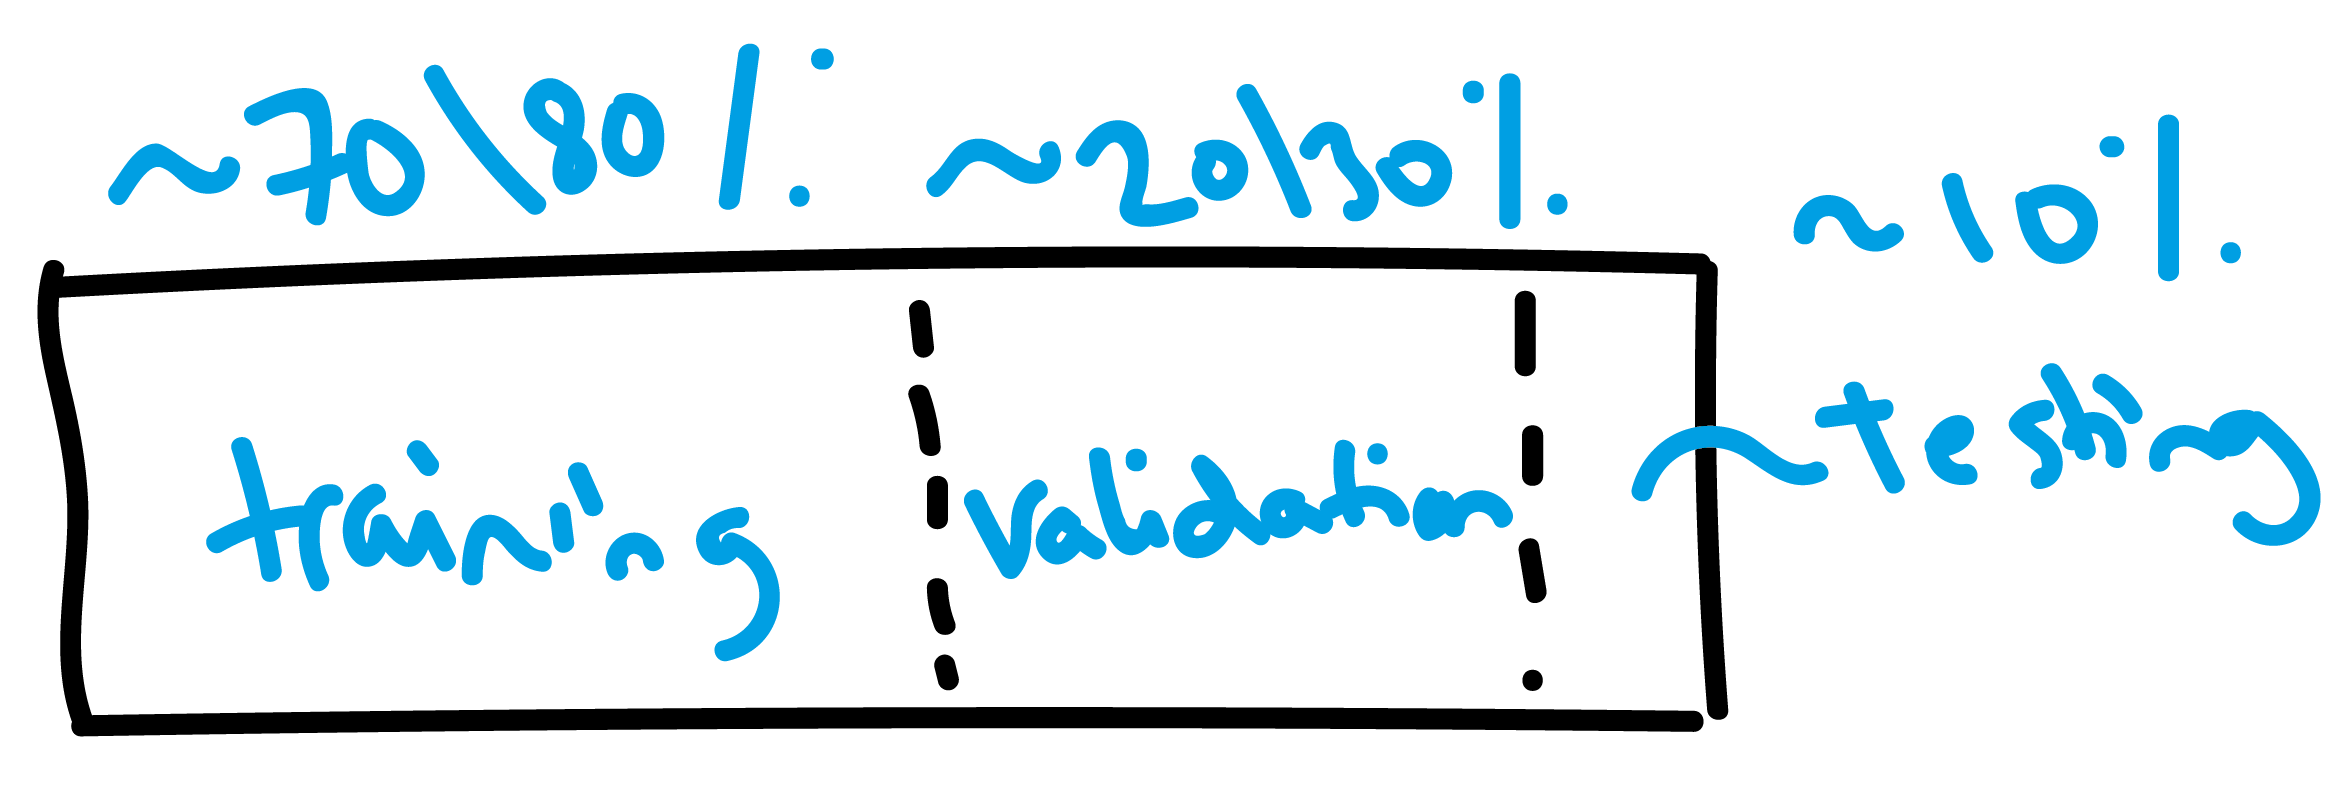 ~70\80% ~20\30% ~10%
training validation testing